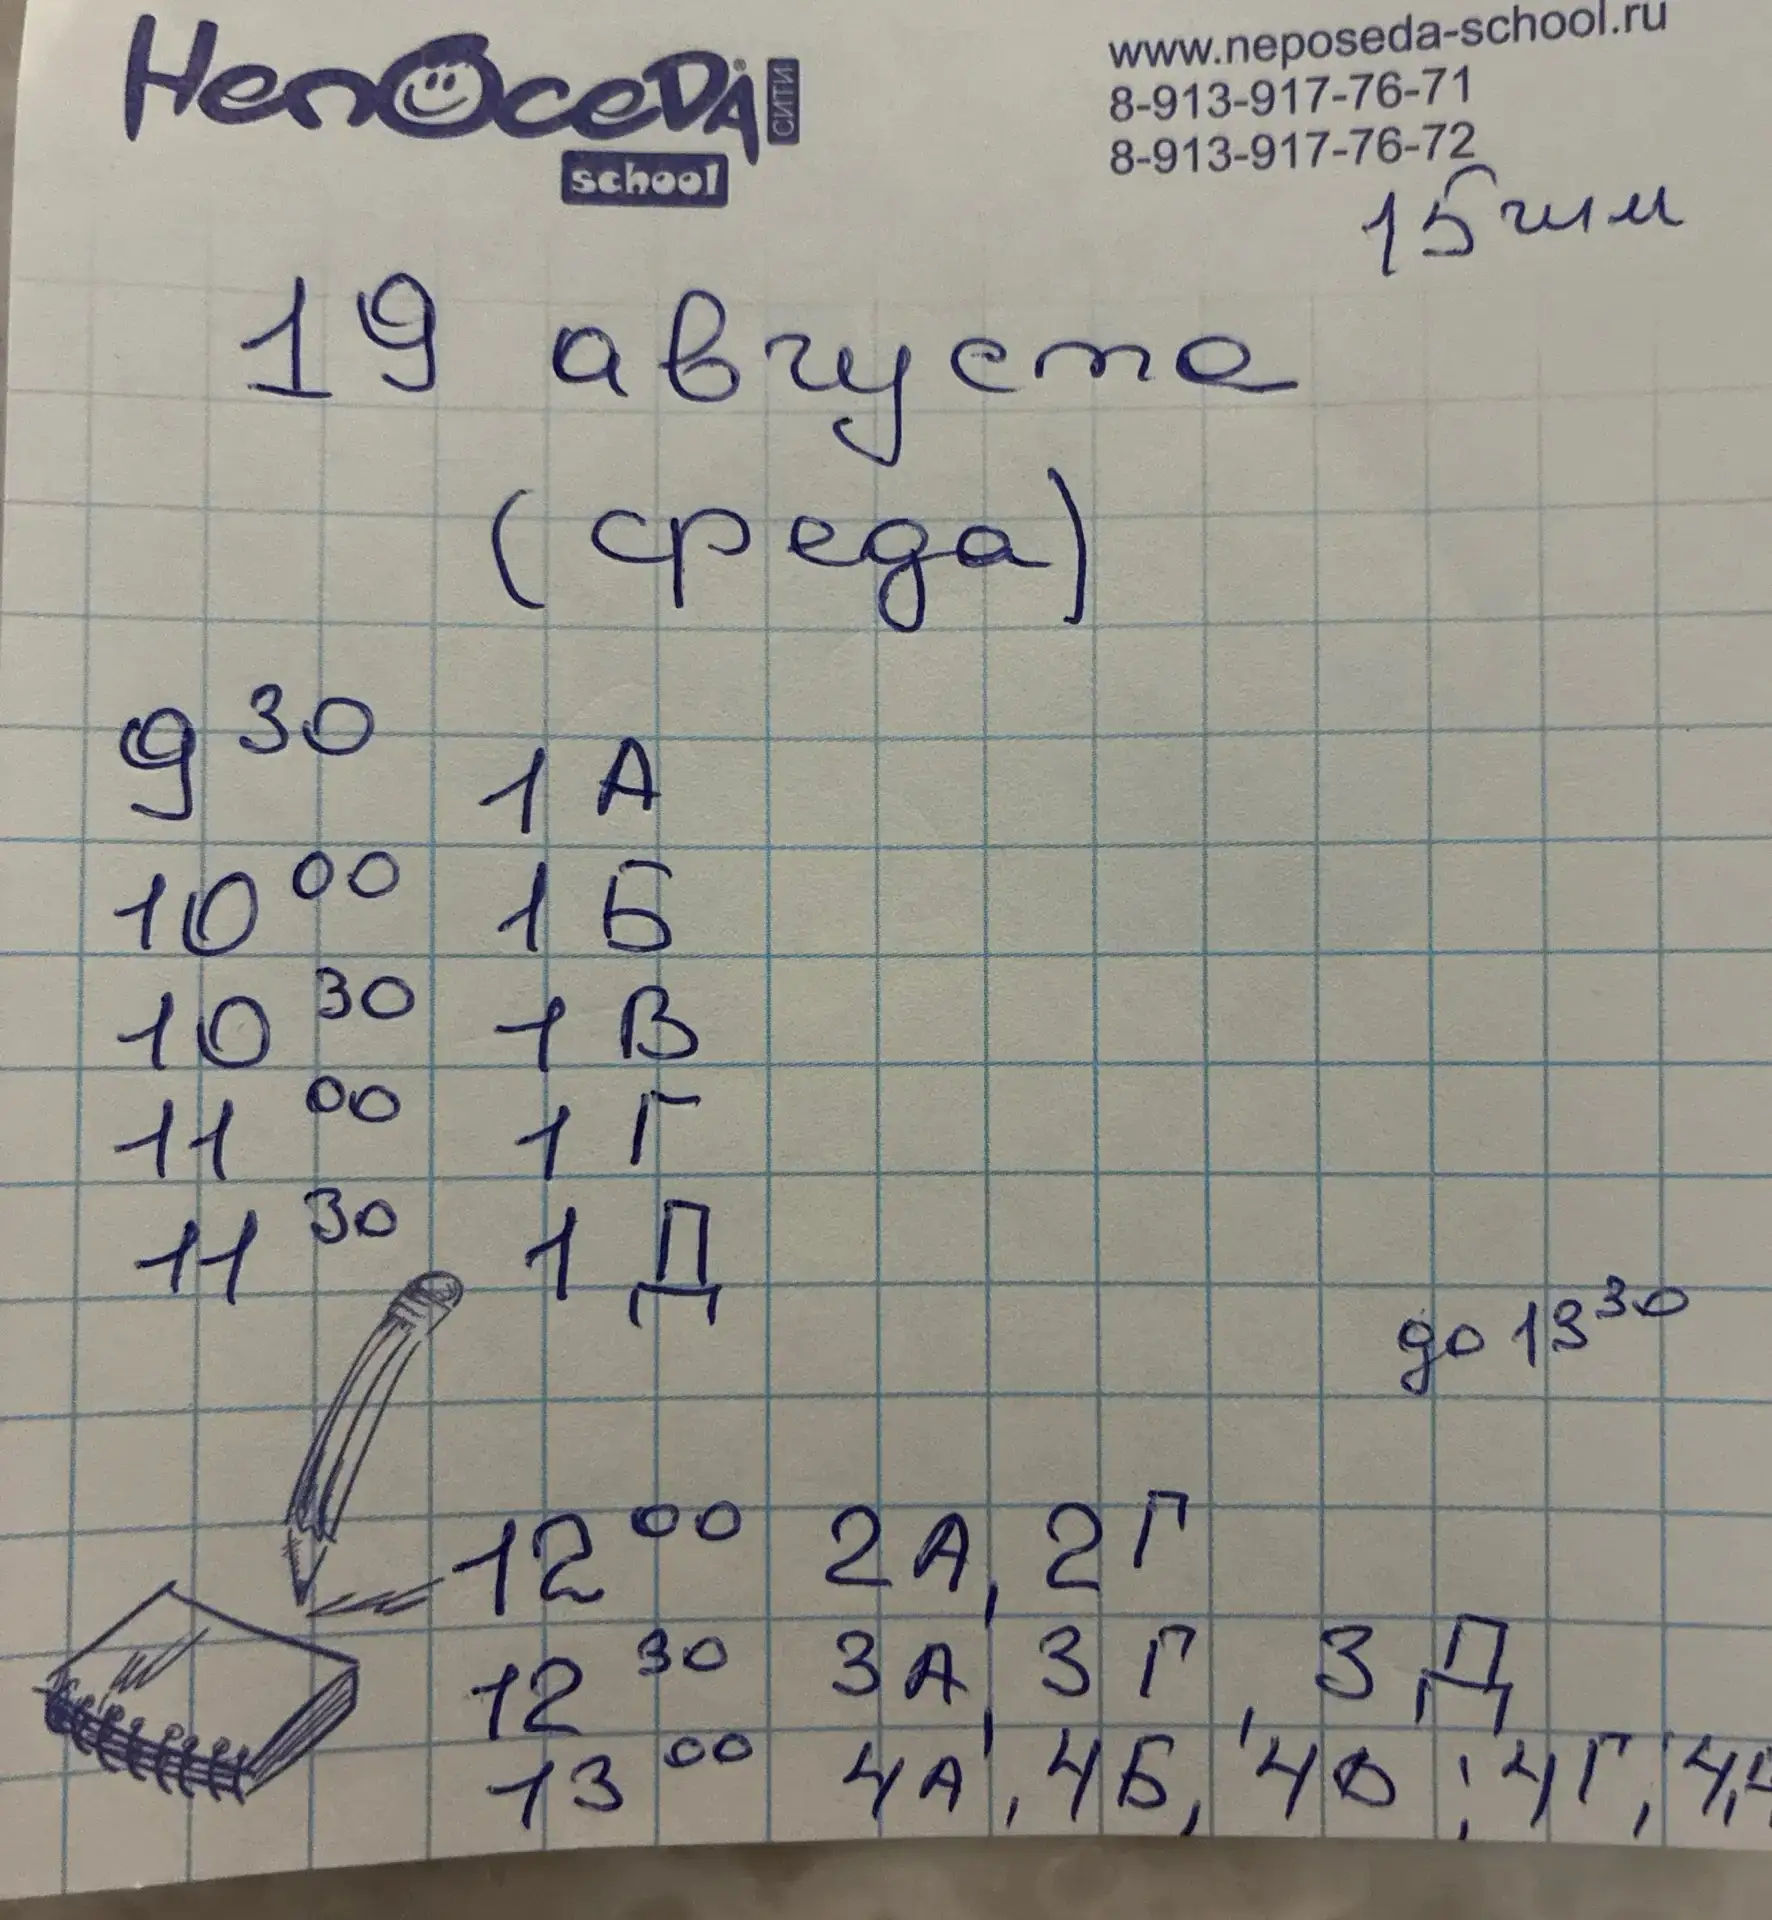 Непоседа СИТИ
school
www.neposeda-school.ru
8-913-917-76-71
8-913-917-76-72
15 гим
19 августа
(среда)
9 30 1 А
10 00 1 Б
10 30 1 В
11 00 1 Г
11 30 1 Д
до 13 30
12 00 2А, 2Г
12 30 3А, 3Г, 3Д
13 00 4А, 4Б, 4В, 4Г, 4Д